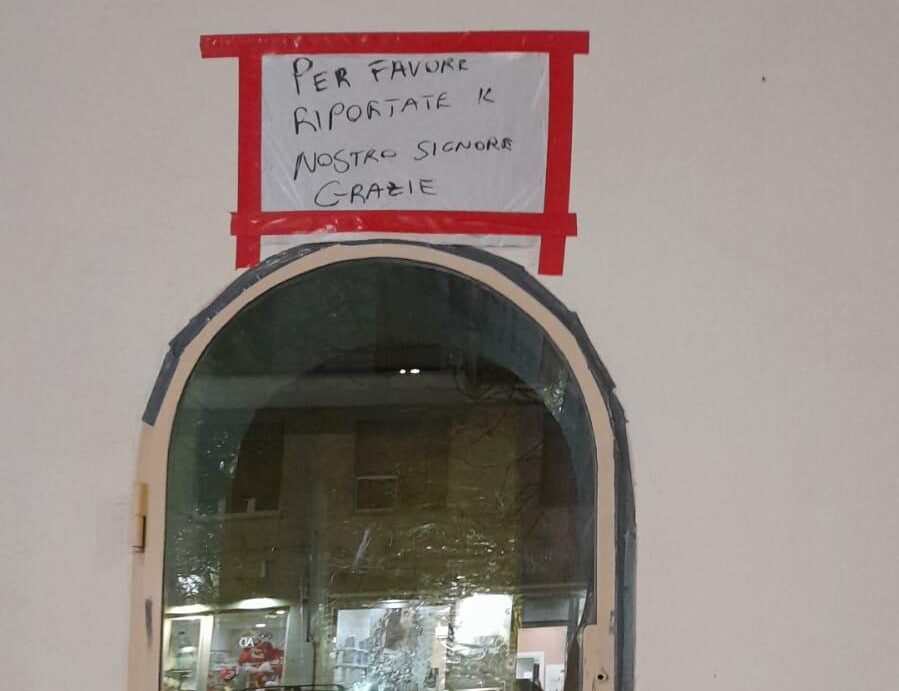 PER FAVORE
RIPORTATE IL
NOSTRO SIGNORE
GRAZIE
CIA